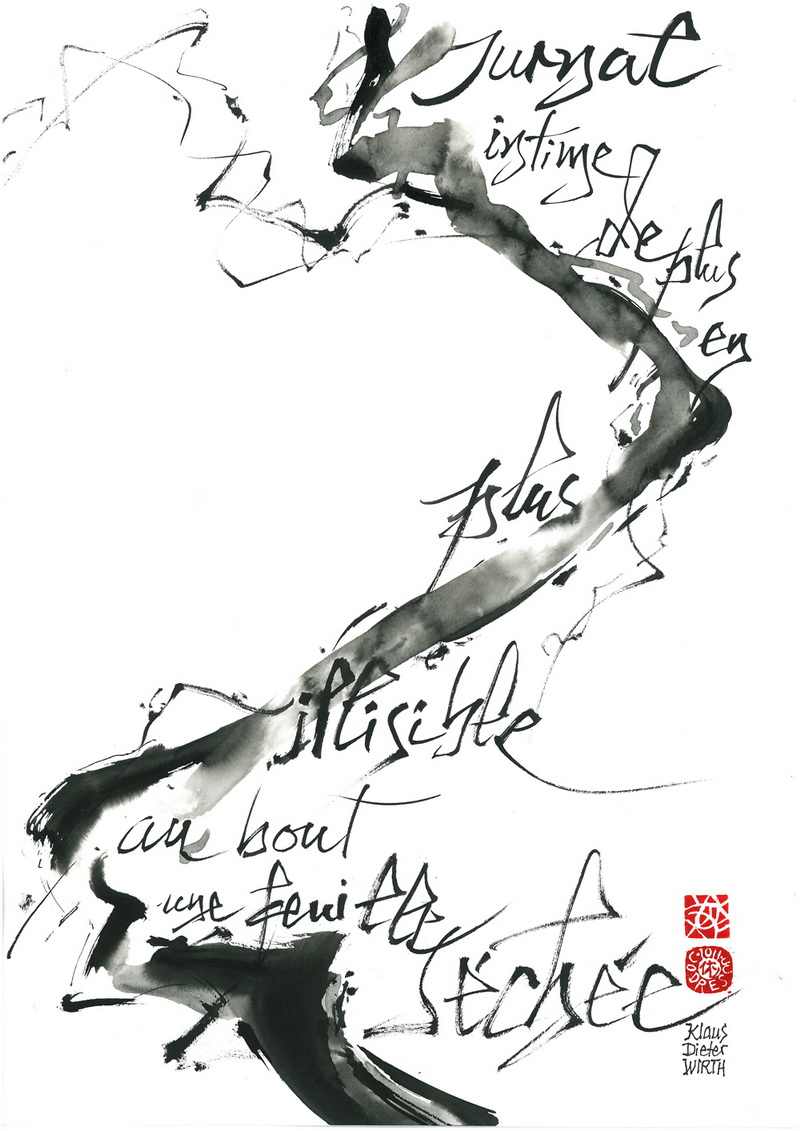 Jurnal
intime
de plus
en
plus
illisible
au bout
une feuille
séchée
Klaus
Dieter
WIRTH